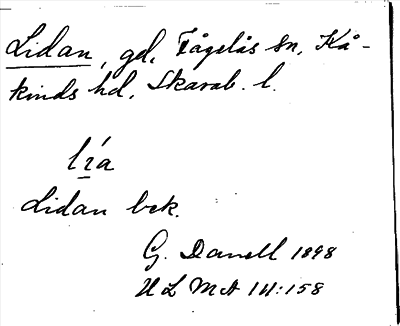 Lidan, gd, Fågelås sn, Kå-
kinds hd, Skarab. l.
lía
Lidan bek.
G. Danell 1898
ULMA 141:158